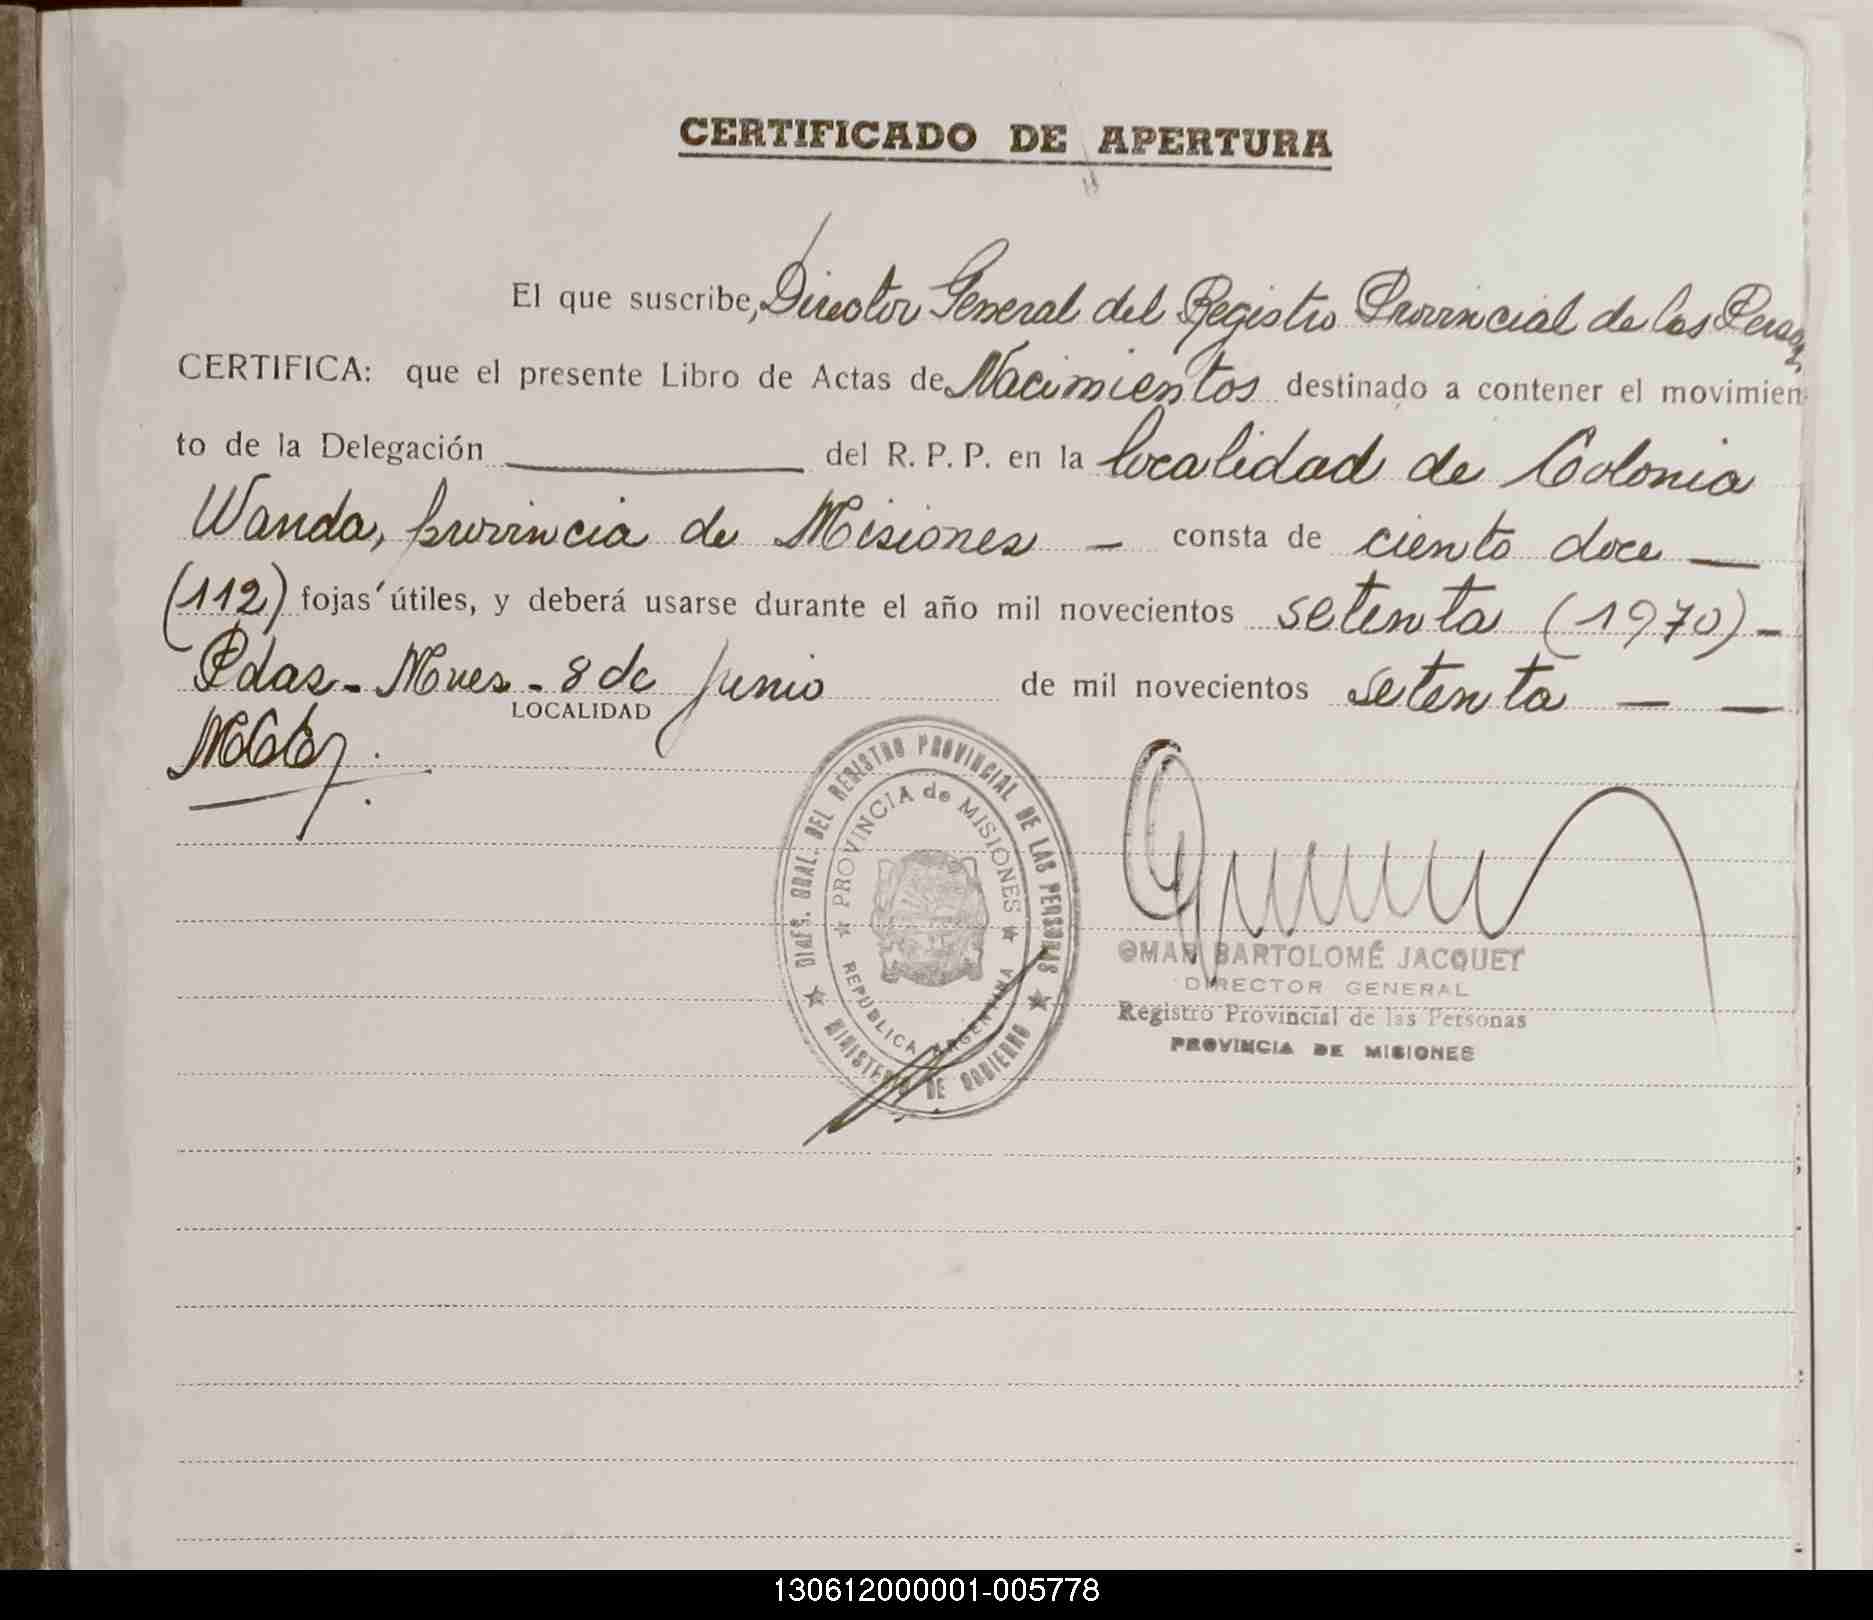 CERTIFICADO DE APERTURA
El que suscribe, Director General del Registro Provincial de las Personas
CERTIFICA: que el presente Libro de Actas de Nacimientos destinado a contener el movimien-
to de la Delegación del R. P. P. en la localidad de Colonia
Wanda, provincia de Misiones - consta de ciento doce —
(112) fojas útiles, y deberá usarse durante el año mil novecientos setenta (1970) -
Pdas - Mnes - 8 de Junio de mil novecientos setenta — —
LOCALIDAD
DIREC. GRAL. DEL REGISTRO PROVINCIAL DE LAS PERSONAS
MINISTERIO DE GOBIERNO
PROVINCIA de MISIONES
REPUBLICA ARGENTINA
OMAR BARTOLOMÉ JACQUET
DIRECTOR GENERAL
Registro Provincial de las Personas
PROVINCIA DE MISIONES
130612000001-005778